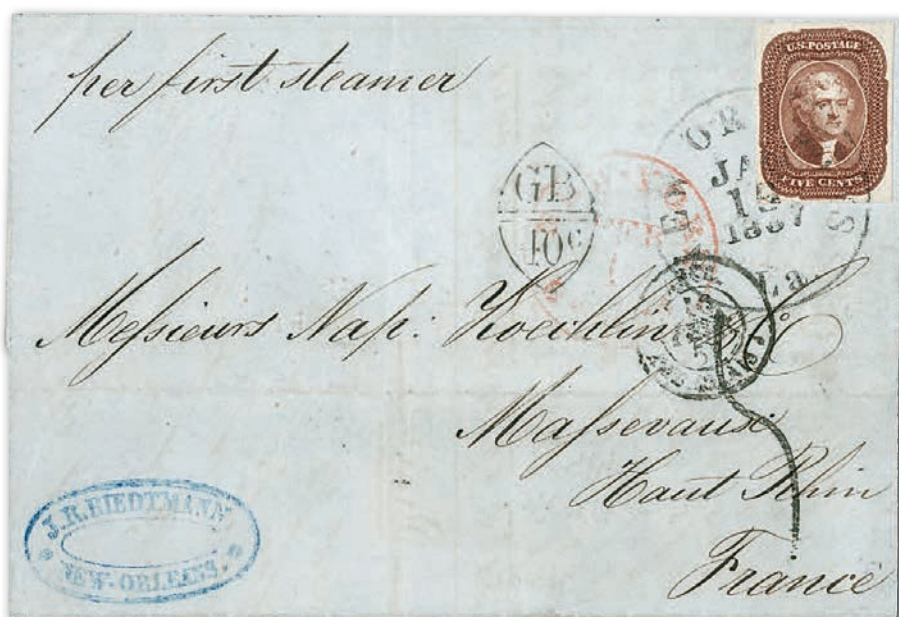 per first steamer
U.S. POSTAGE
FIVE CENTS
NEW ORLEANS
JAN
18
1857
La
GB
40c
Messieurs Nap: Koechlin & Cº
Massevause
Haut Rhin
France
J.R. RIEDTMANN
NEW-ORLEANS.